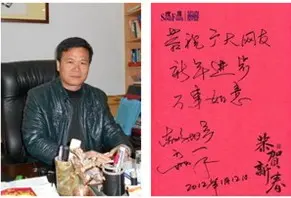 恭祝广大网友
新年进步
万事如意
2012年1月12日
恭賀
新春